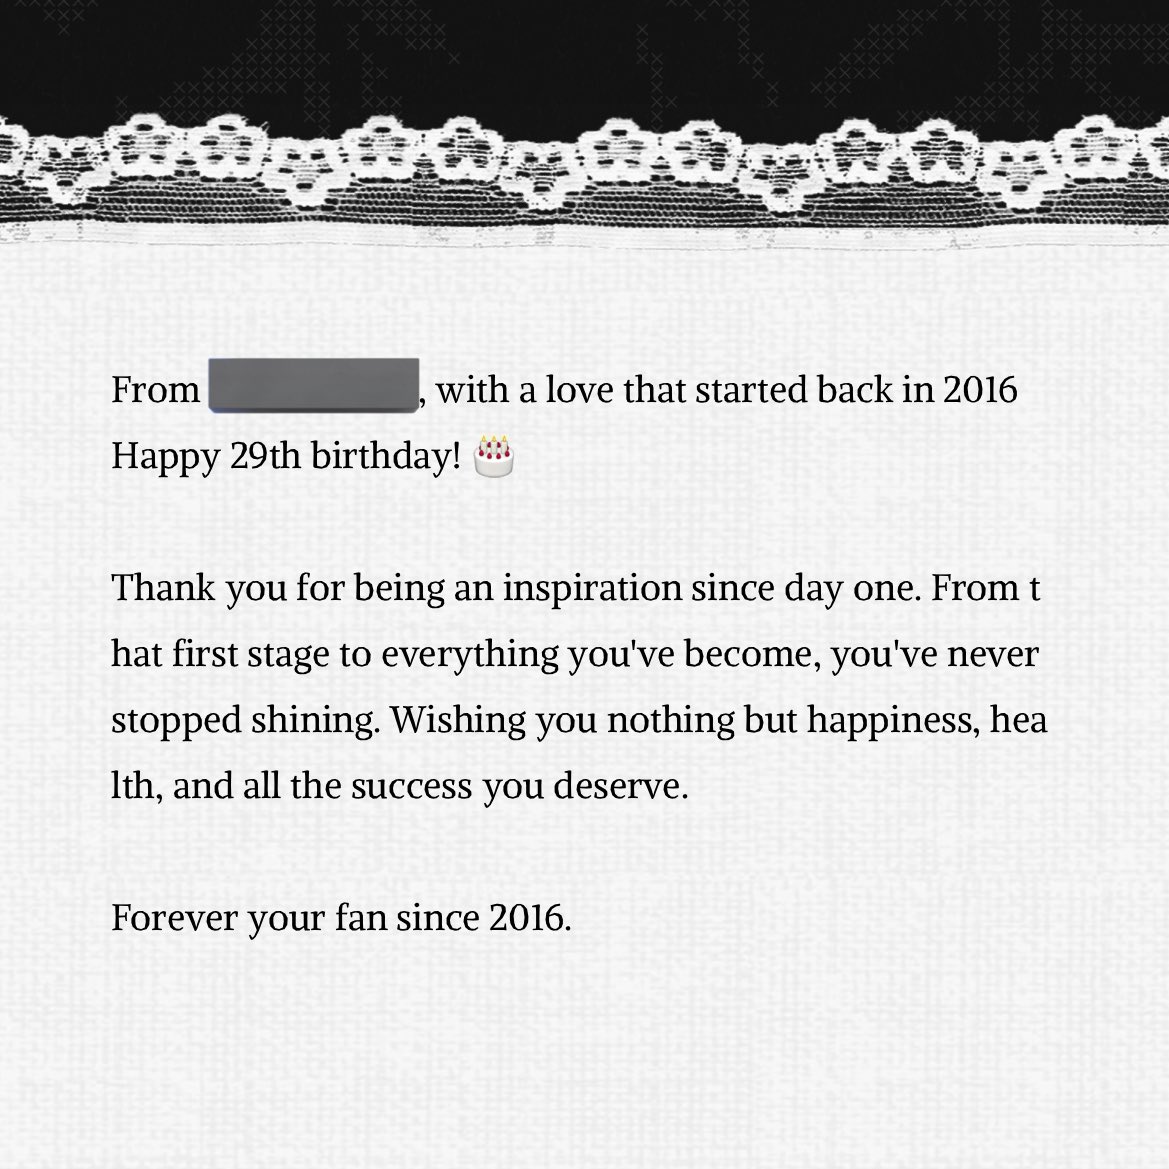 From , with a love that started back in 2016
Happy 29th birthday! 🎂
Thank you for being an inspiration since day one. From t
hat first stage to everything you've become, you've never
stopped shining. Wishing you nothing but happiness, hea
lth, and all the success you deserve.
Forever your fan since 2016.